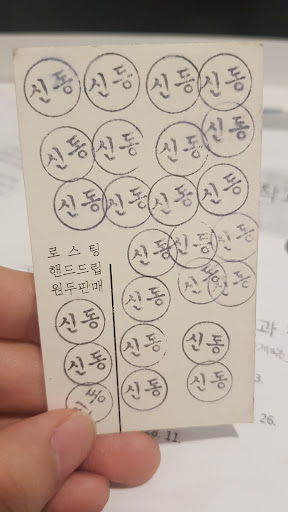 신동 신동 신동 신동
신동 신동 신동 신동
신동 신동 신동 신동
신동 신동 신동
로스팅
핸드드립
원두판매
신동 신동
신동
신동 신동 신동
신동
신동 신동
신동
과
3.
26.
11.